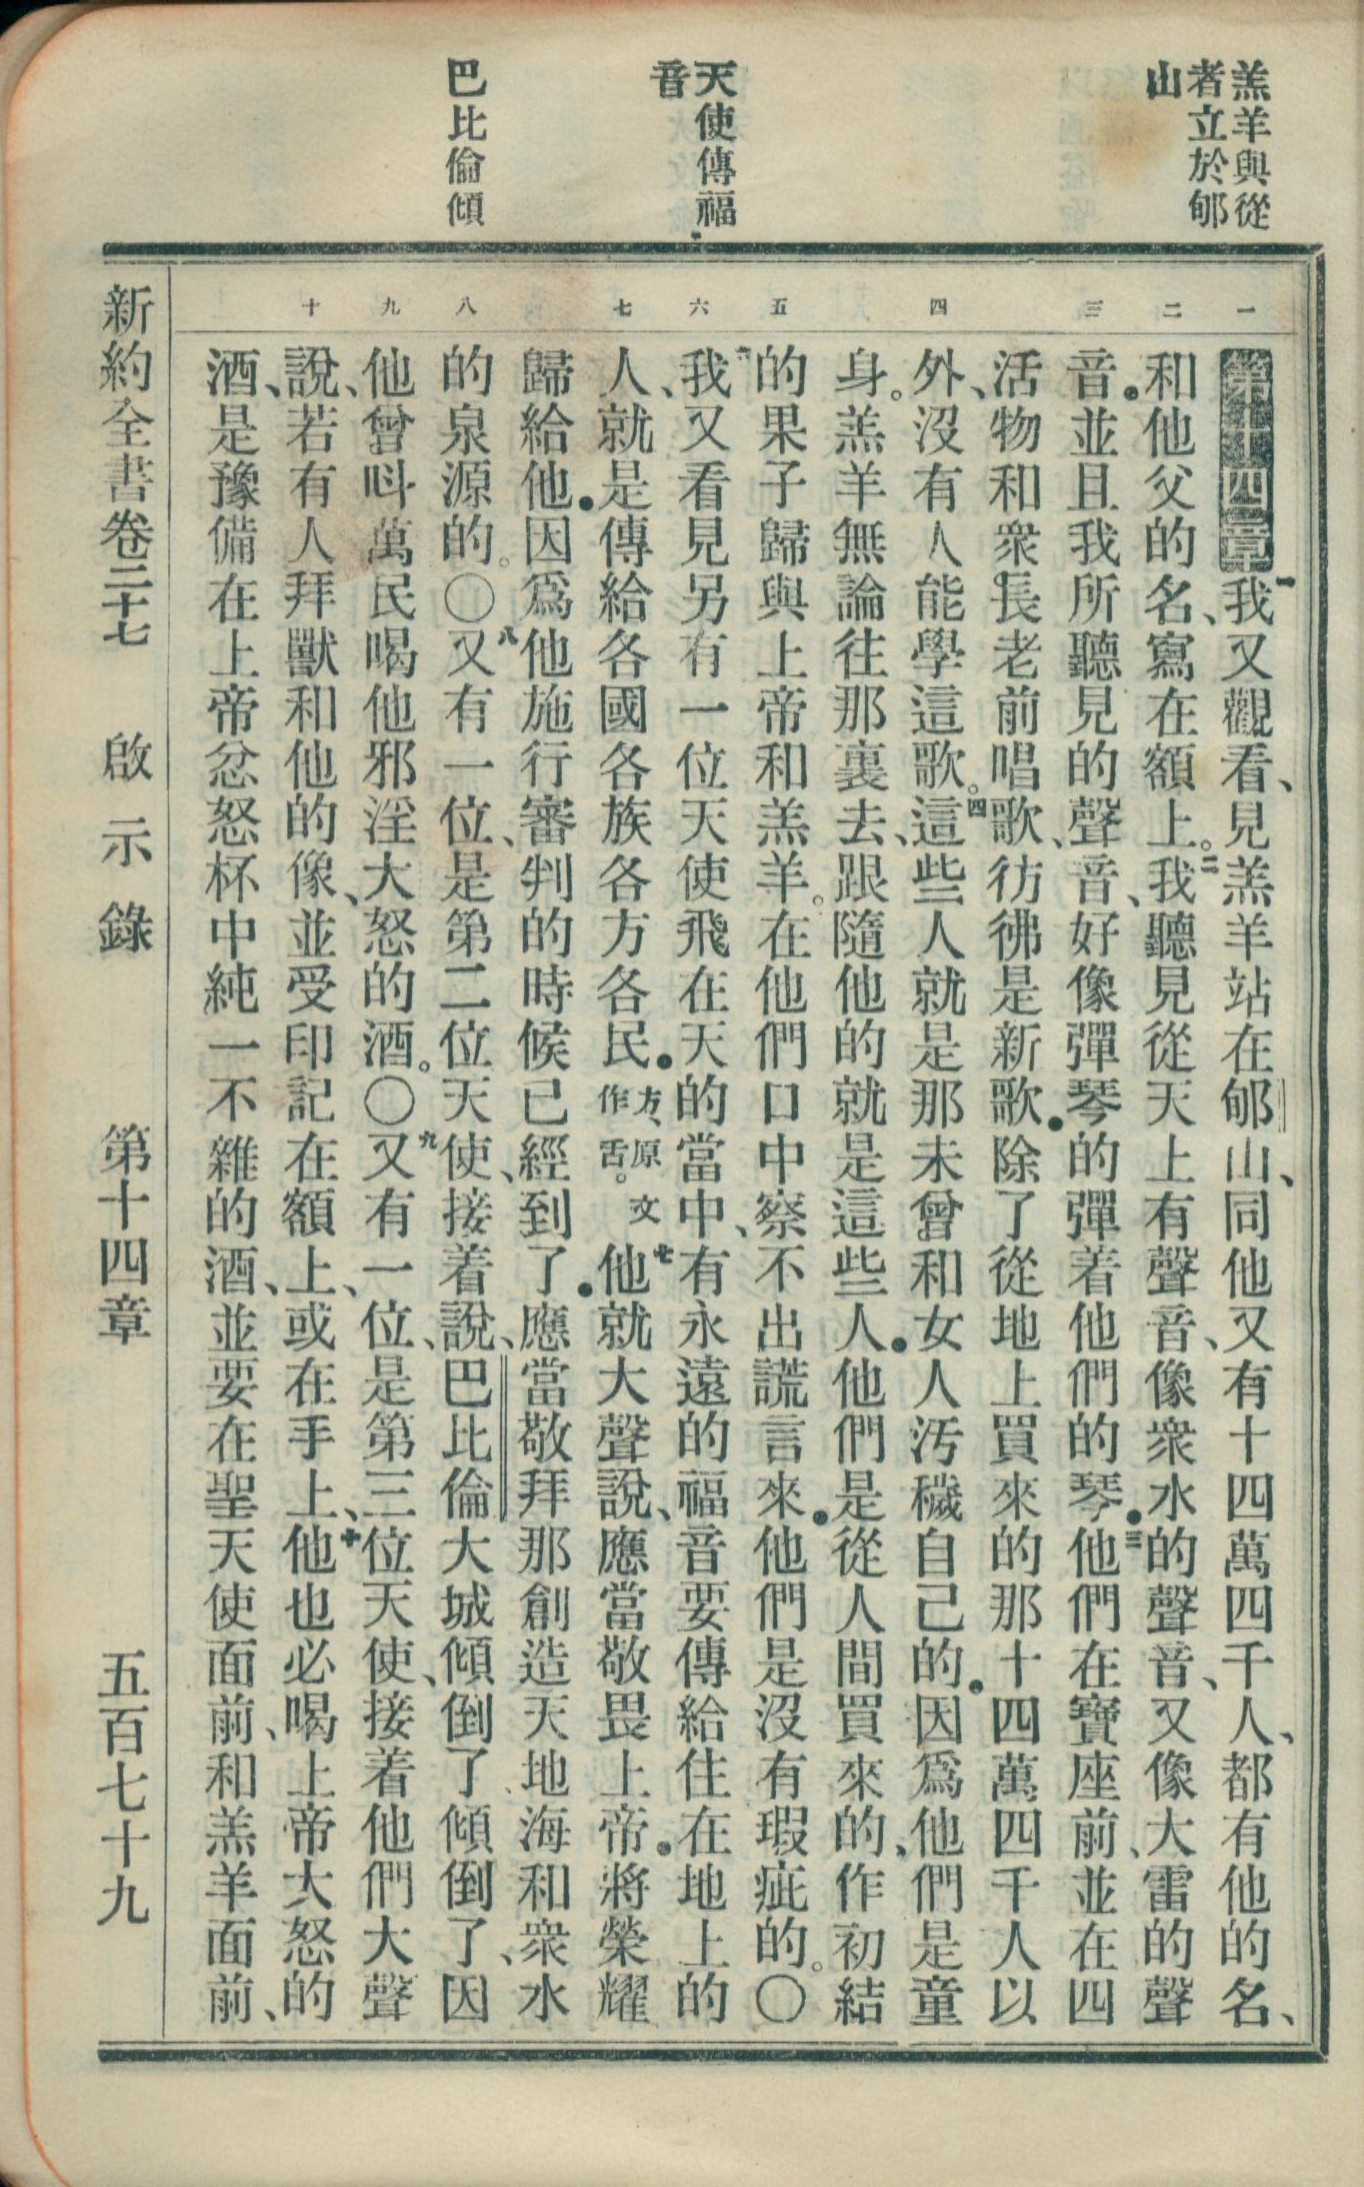 羔羊與從
者立於郇
山
天使傳福
音
巴比倫傾
一 二 三 四 五 六 七 八 九 十
第十四章一我又觀看、見羔羊站在郇山、同他又有十四萬四千人、都有他的名、
和他父的名、寫在額上。二我聽見從天上有聲音、像衆水的聲音、又像大雷的聲
音.並且我所聽見的聲音、好像彈琴的彈着他們的琴.三他們在寶座前、並在四
活物和衆長老前唱歌、彷彿是新歌.除了從地上買來的那十四萬四千人以
外、沒有人能學這歌。四這些人就是那未曾和女人汚穢自己的.因爲他們是童
身。羔羊無論往那裏去、跟隨他的就是這些人.他們是從人間買來的、作初結
的果子歸與上帝和羔羊。在他們口中察不出謊言來.他們是沒有瑕疵的。〇
六我又看見另有一位天使飛在天的當中、有永遠的福音要傳給住在地上的
人、就是傳給各國各族各方各民.方、原文作舌。七他就大聲說、應當敬畏上帝.將榮耀
歸給他.因爲他施行審判的時候已經到了.應當敬拜那創造天地海和衆水
的泉源的。〇八又有一位、是第二位天使、接着說、巴比倫大城傾倒了、傾倒了、因
他曾呌萬民喝他邪淫大怒的酒。〇九又有一位、是第三位天使、接着他們大聲
說、若有人拜獸和他的像、並受印記在額上、或在手上、十他也必喝上帝大怒的
酒、是豫備在上帝忿怒杯中純一不雜的酒、並要在聖天使面前、和羔羊面前、
新約全書卷二十七 啟示錄 第十四章 五百七十九